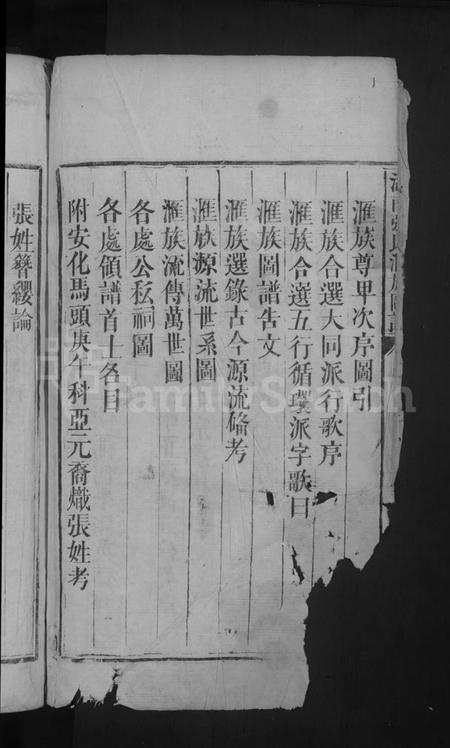 滙族尊卑次序圖引
滙族合選大同派行歌序
滙族合選五行循環派字歌曰
滙族圖譜告文
滙族選錄古今源流畧考
滙族源流世系圖
滙族流傳萬世圖
各處公私祠圖
各處領譜首士各目
附安化馬頭庚午科亞元裔熾張姓考
張姓簪纓論
FamilySearch